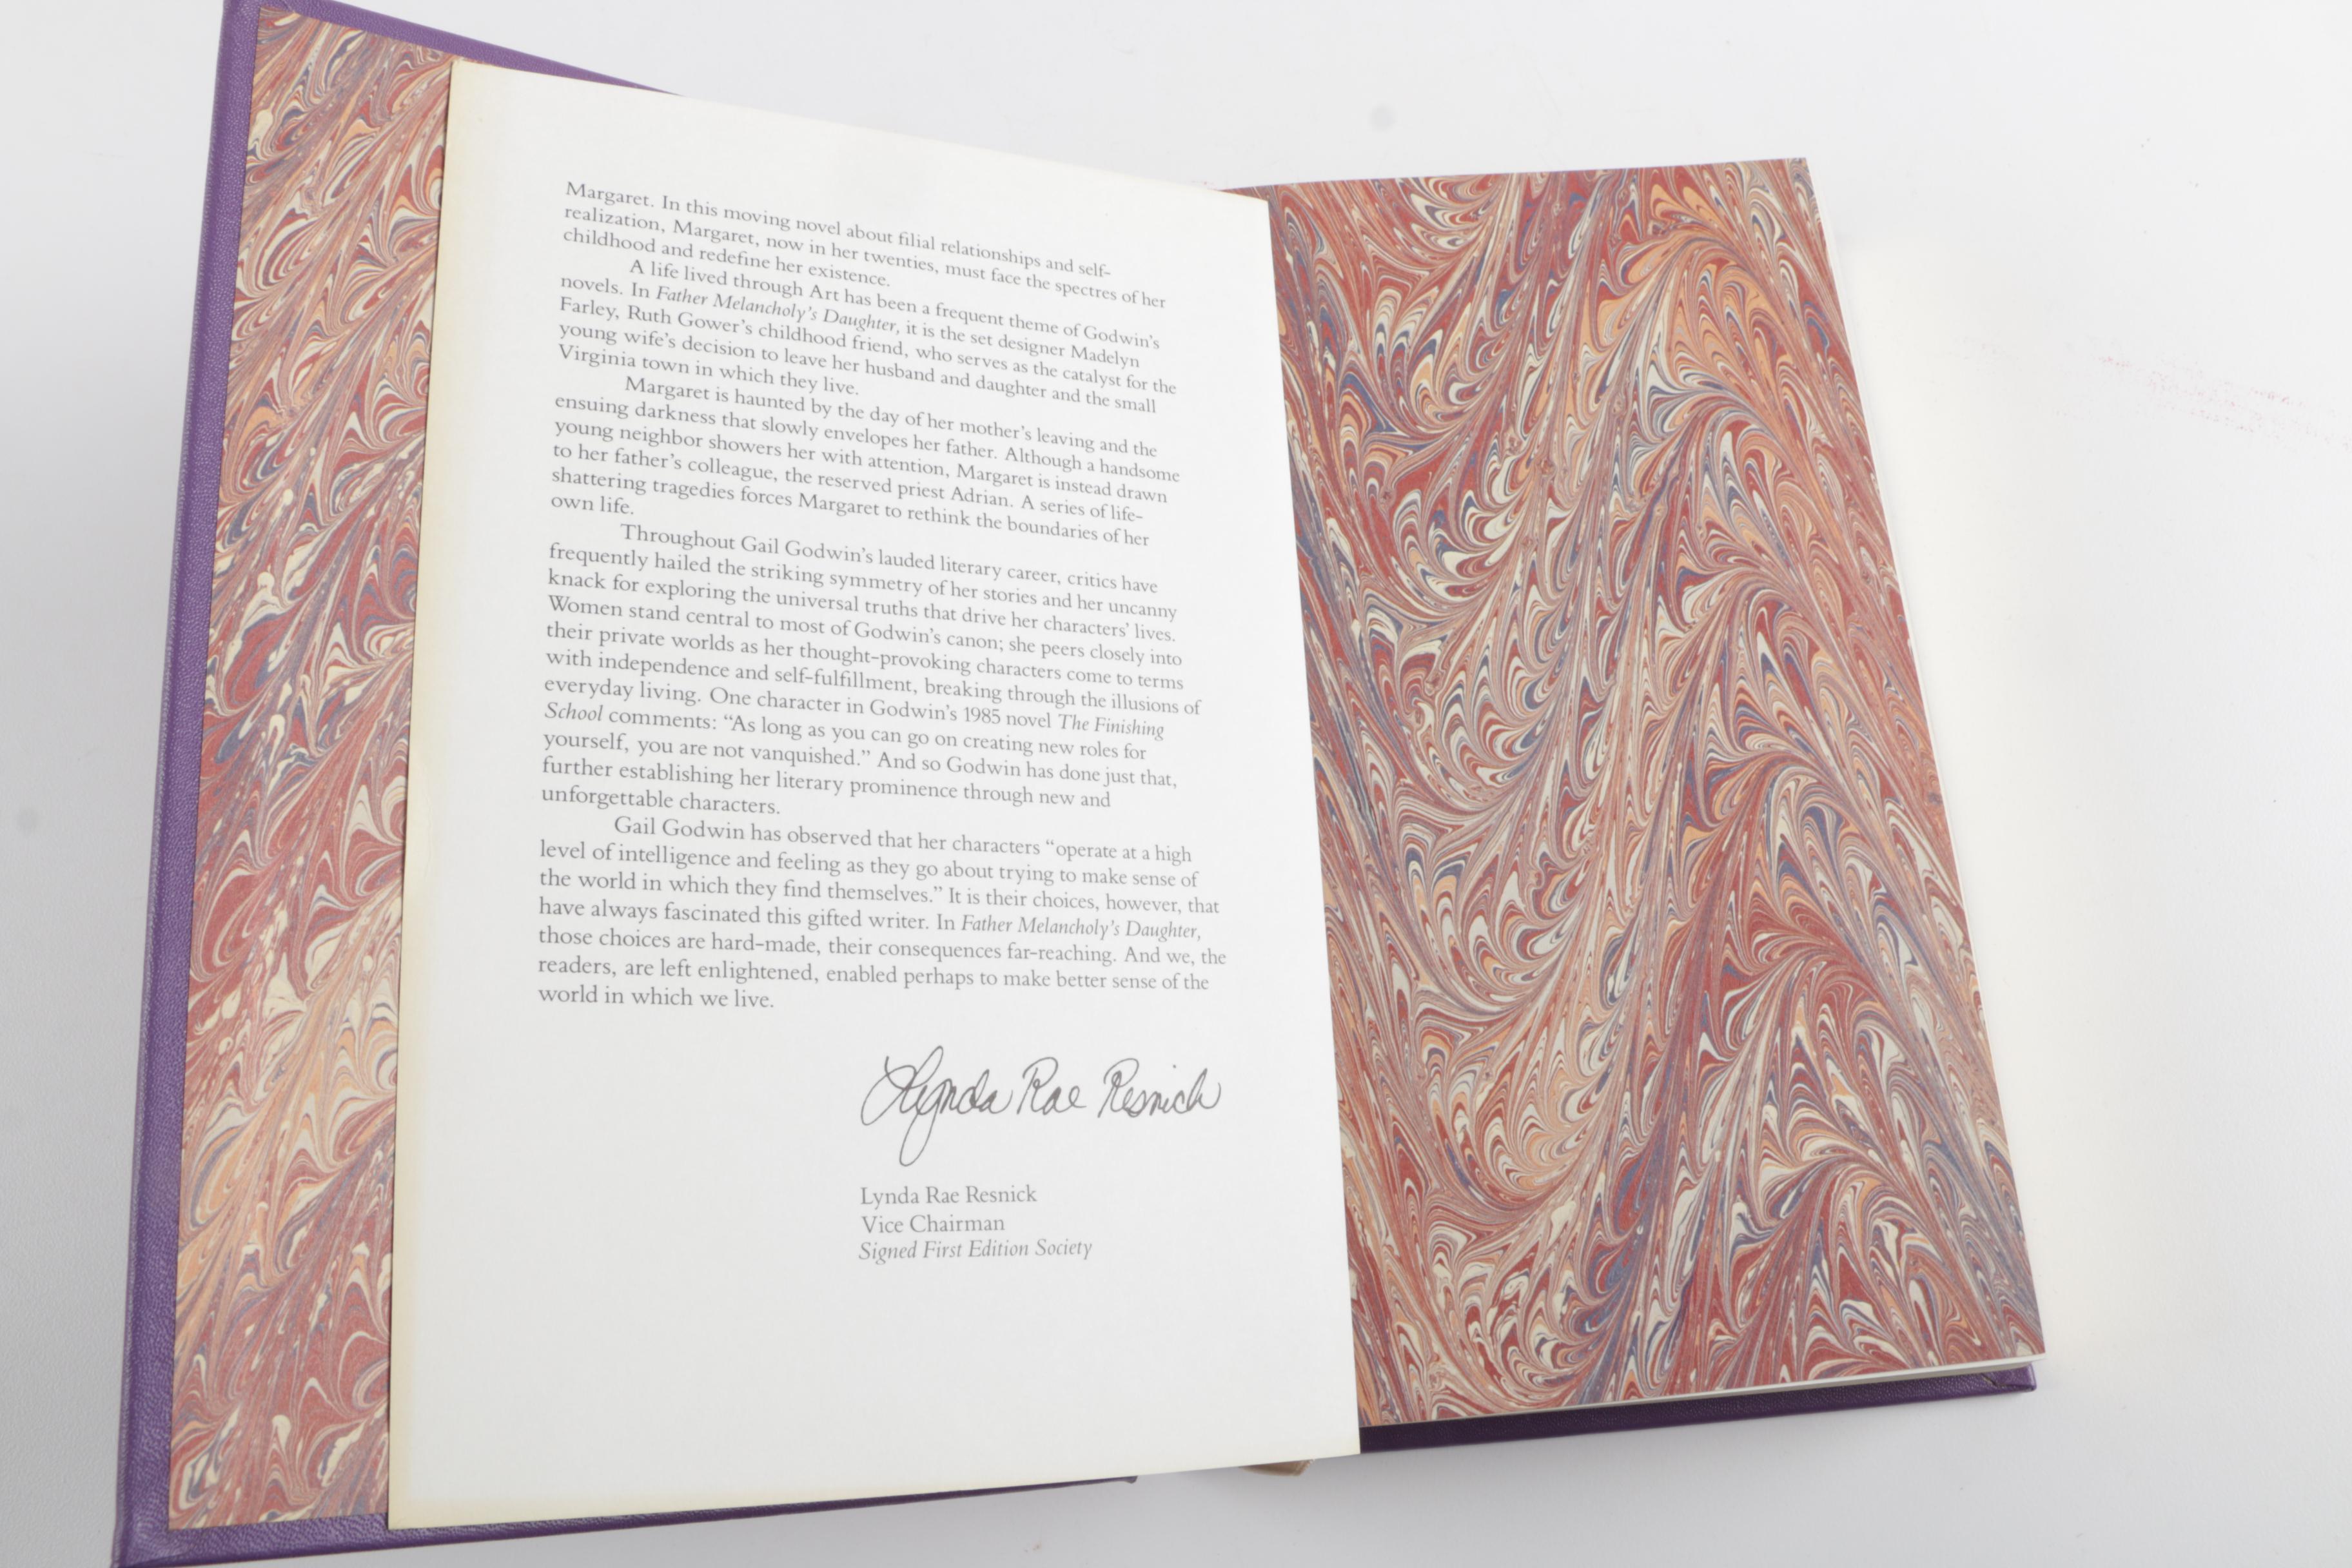 Margaret. In this moving novel about filial relationships and self-
realization, Margaret, now in her twenties, must face the spectres of her
childhood and redefine her existence.
A life lived through Art has been a frequent theme of Godwin's
novels. In Father Melancholy's Daughter, it is the set designer Madelyn
Farley, Ruth Gower's childhood friend, who serves as the catalyst for the
young wife's decision to leave her husband and daughter and the small
Virginia town in which they live.
Margaret is haunted by the day of her mother's leaving and the
ensuing darkness that slowly envelopes her father. Although a handsome
young neighbor showers her with attention, Margaret is instead drawn
to her father's colleague, the reserved priest Adrian. A series of life-
shattering tragedies forces Margaret to rethink the boundaries of her
own life.
Throughout Gail Godwin's lauded literary career, critics have
frequently hailed the striking symmetry of her stories and her uncanny
knack for exploring the universal truths that drive her characters' lives.
Women stand central to most of Godwin's canon; she peers closely into
their private worlds as her thought-provoking characters come to terms
with independence and self-fulfillment, breaking through the illusions of
everyday living. One character in Godwin's 1985 novel The Finishing
School comments: “As long as you can go on creating new roles for
yourself, you are not vanquished.” And so Godwin has done just that,
further establishing her literary prominence through new and
unforgettable characters.
Gail Godwin has observed that her characters “operate at a high
level of intelligence and feeling as they go about trying to make sense of
the world in which they find themselves.” It is their choices, however, that
have always fascinated this gifted writer. In Father Melancholy's Daughter,
those choices are hard-made, their consequences far-reaching. And we, the
readers, are left enlightened, enabled perhaps to make better sense of the
world in which we live.
Lynda Rae Resnick
Lynda Rae Resnick
Vice Chairman
Signed First Edition Society